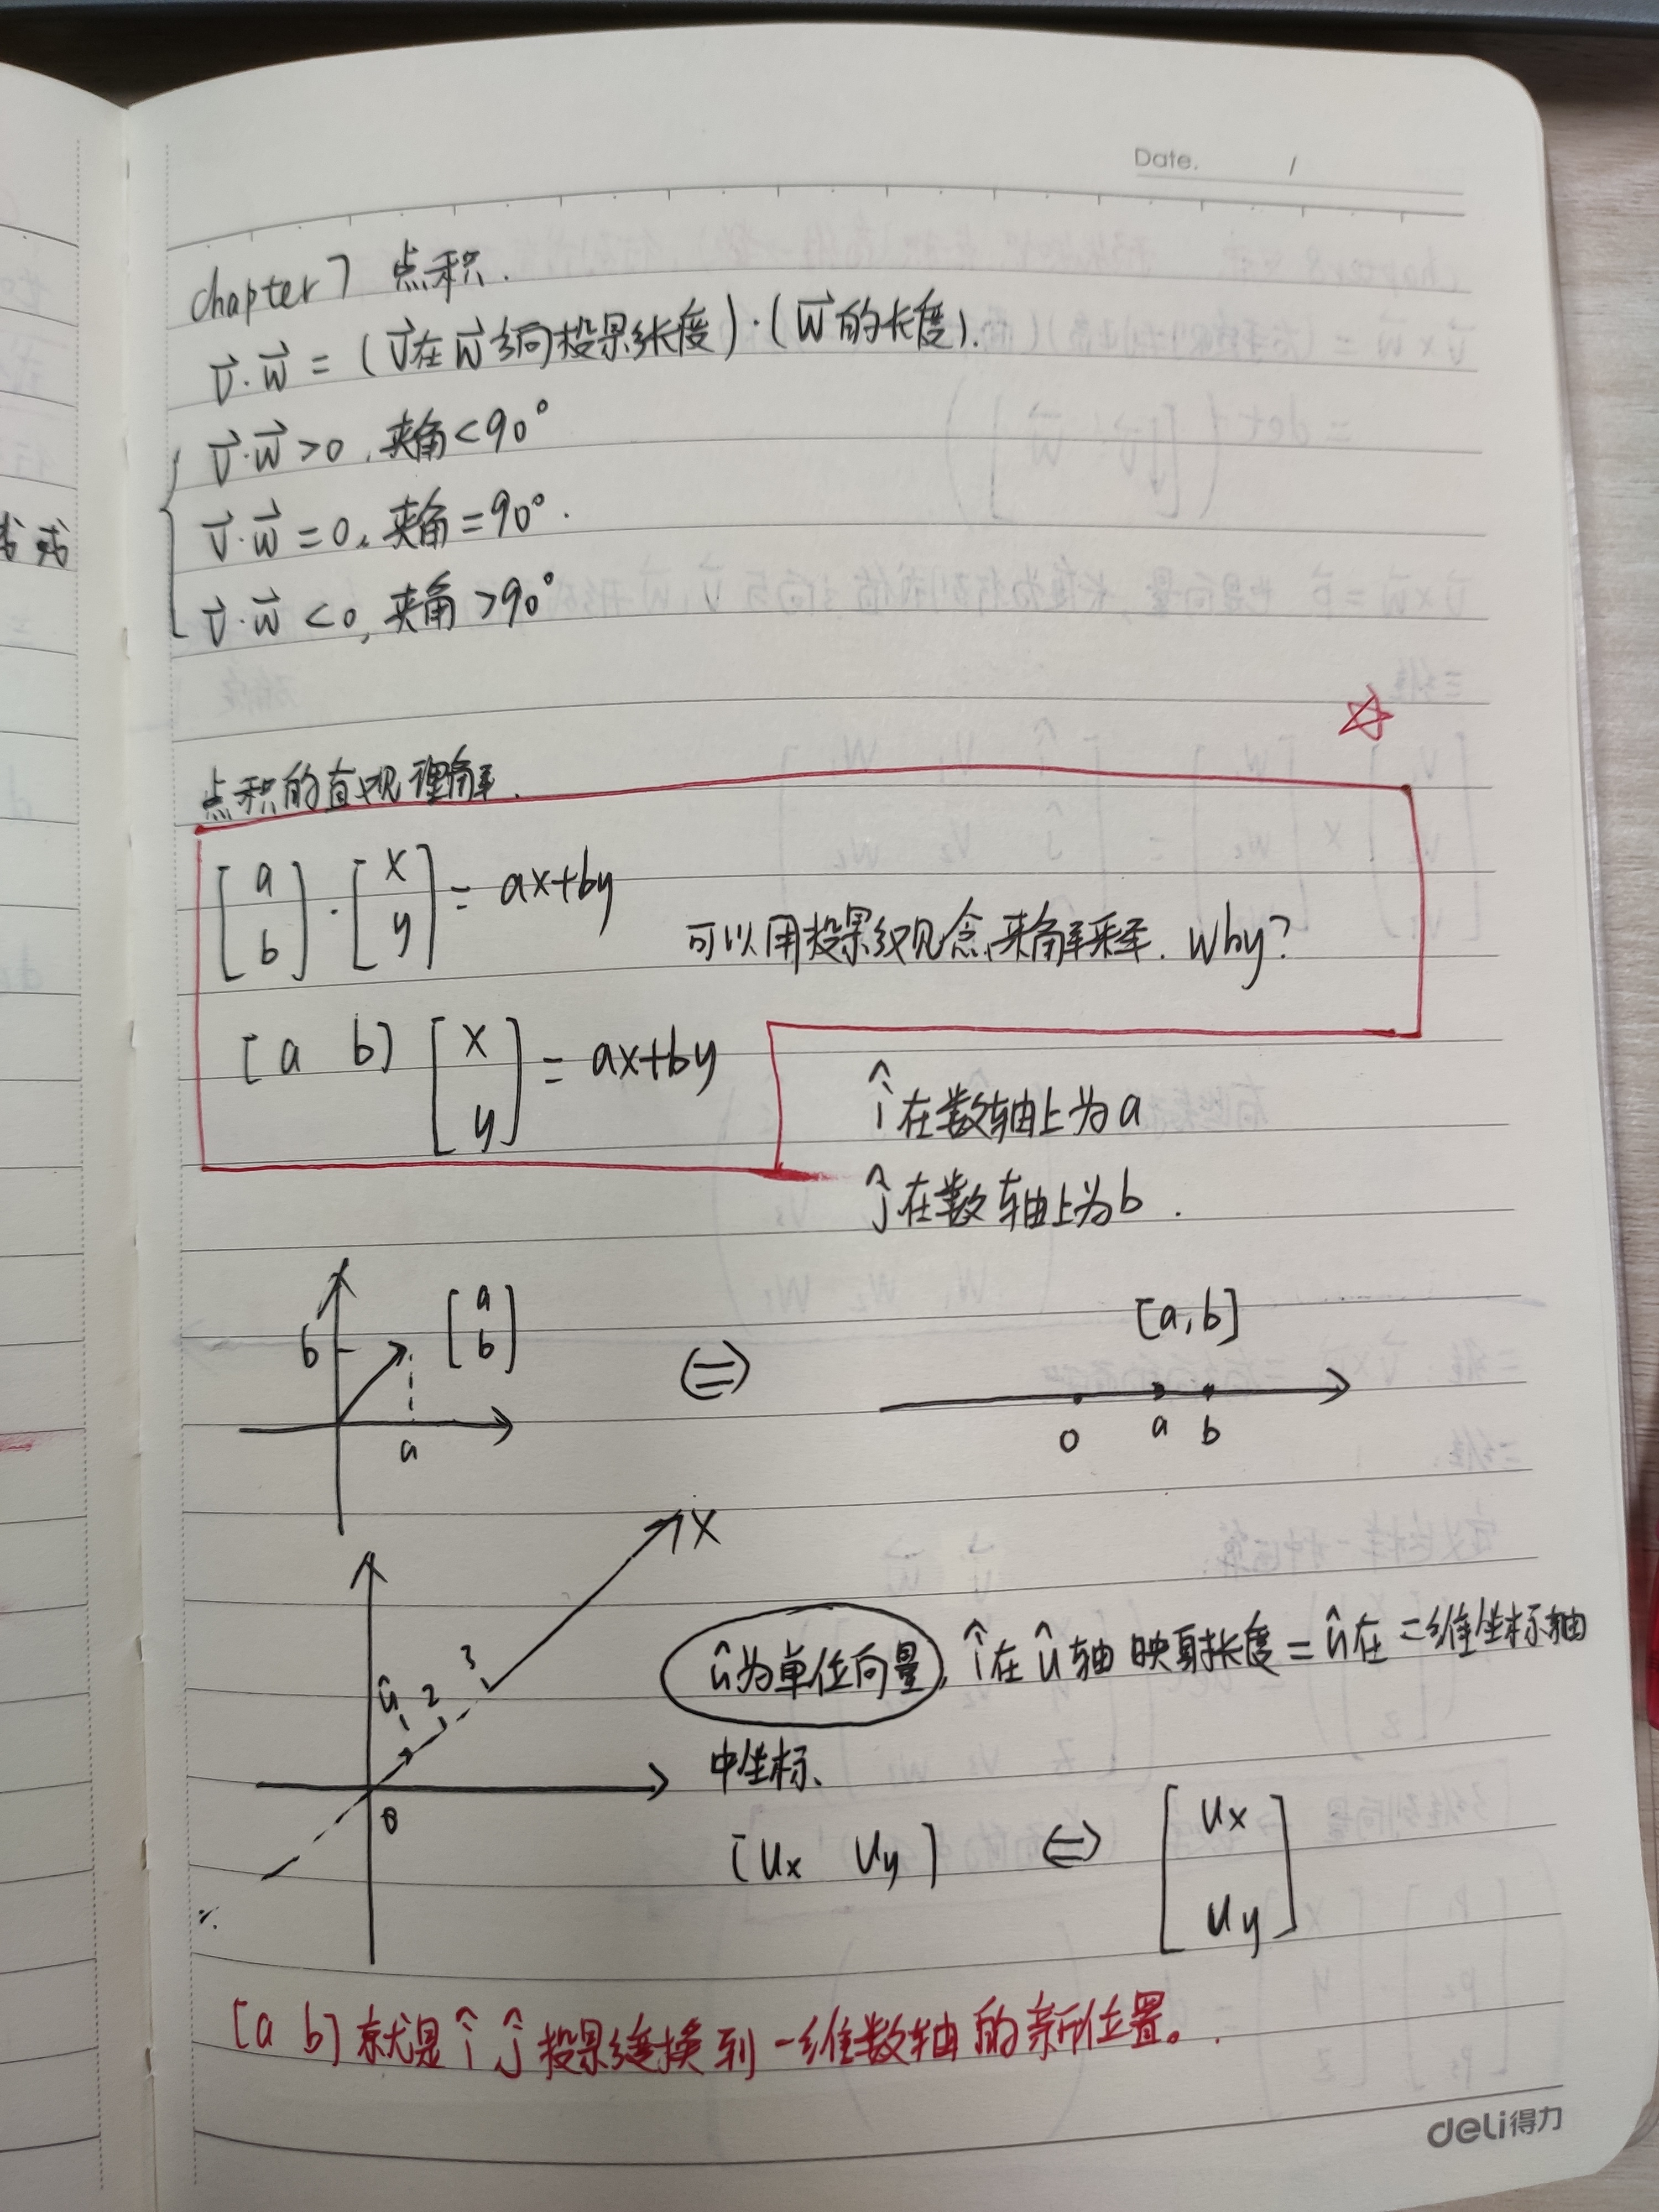 Date. /
chapter 7 点积.
v⃗·w⃗ = (v⃗在w⃗方向投影长度)·(w⃗的长度).
v⃗·w⃗>0, 夹角<90°
v⃗·w⃗=0, 夹角=90°.
v⃗·w⃗<0, 夹角>90°
☆
点积的直观理解.
[a b]·[x y] = ax+by
可以用投影观念来解释. why?
[a b][x y] = ax+by
î在数轴上为a
ĵ在数轴上为b.
b [a b] a
⇔
[a,b]
0 a b
x
û 2 3
0
û为单位向量, î在û轴映射长度=û在二维坐标轴
中坐标、
[ux uy] ⇔ [ux uy]
[a b]就是î ĵ投影变换到一维数轴的新位置。
deli得力